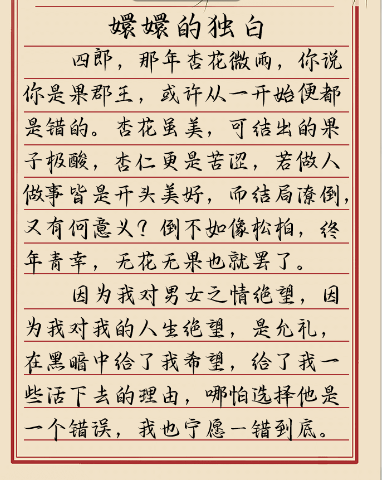 嬛嬛的独白
四郎，那年杏花微雨，你说
你是果郡王，或许从一开始便都
是错的。杏花虽美，可结出的果
子极酸，杏仁更是苦涩，若做人
做事皆是开头美好，而结局潦倒，
又有何意义？倒不如像松柏，终
年青幸，无花无果也就罢了。
因为我对男女之情绝望，因
为我对我的人生绝望，是允礼，
在黑暗中给了我希望，给了我一
些活下去的理由，哪怕选择他是
一个错误，我也宁愿一错到底。